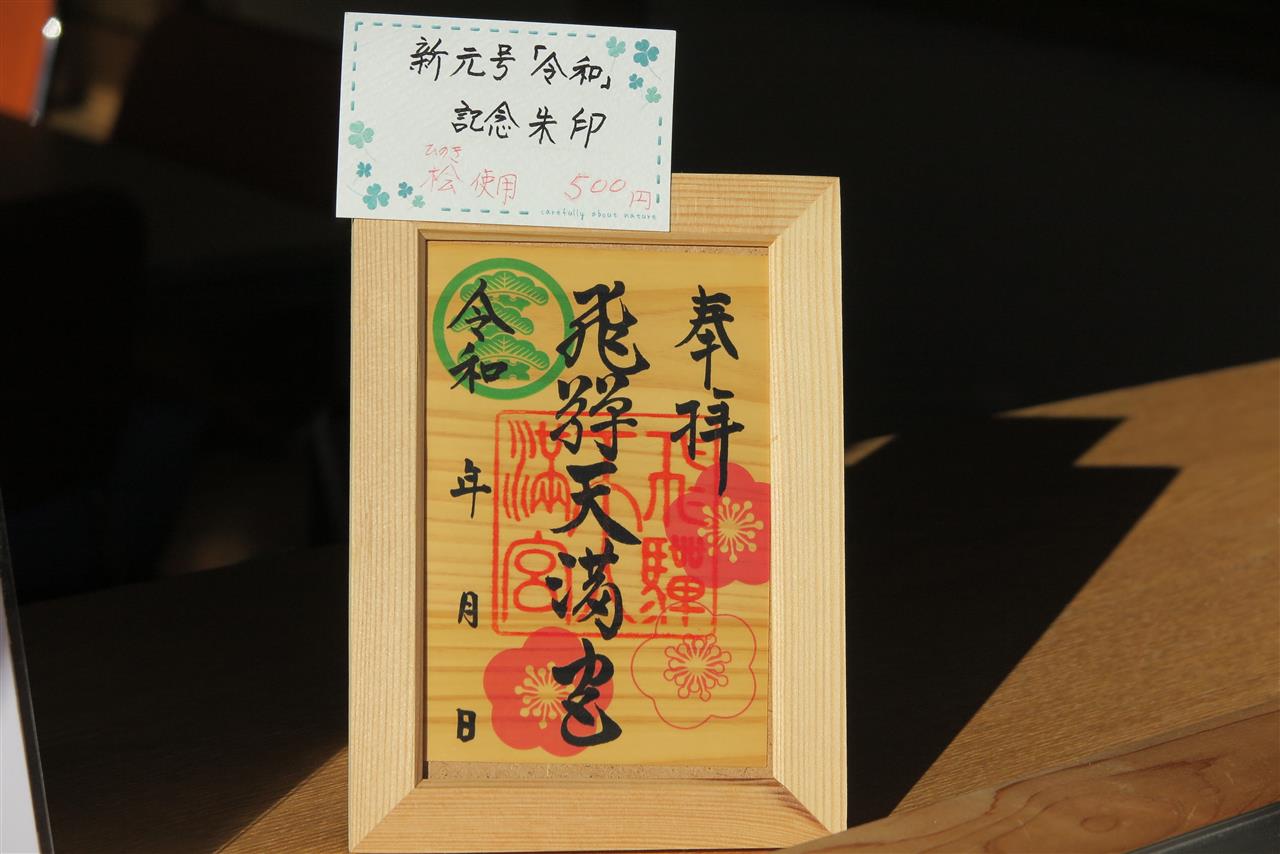 新元号「令和」
記念朱印
ひのき
桧使用 500円
carefully about nature
奉拝
飛騨天満宮
令和 年 月 日
飛騨
天
満宮